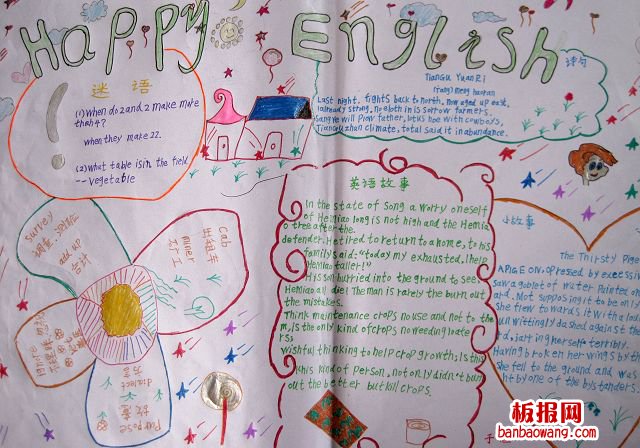 Happy English
谜语
(1) When do 2 and 2 make more
than 4?
when they make 22.
(2) what table is in the field
-- vegetable
诗句
TianGu Yuan Ri
Last night, fights back to north, now aged up east,
already strong, no cloth in is sorrow farmers.
Sangye will pray father, lotus hoe with cowboys,
TianGuzhan climate, total said it in abundance.
英语故事
In the state of Song a worry oneself
of Hemiao long is not high and the Hemia
o tree after the
defender. He tired to return to a home, to his
family said: "today my exhausted, I help
Hemiao taller!"
His son hurried into the ground to see,
Hemiao all die! The man is rarely the burn out
the mistakes.
Think maintenance crops no use and not to the
m, is the only kind of crops no weeding hate
rs;
wishful thinking to help crop growth; is this
this kind of person, not only didn't burn
out the better but kill crops.
小故事
The Thirsty Pige
A PIGEON, oppressed by excessi
saw a goblet of water painted on
ard. Not supposing it to be only
she flew towards it with a loud
unwittingly dashed against the
rd, jarring herself terribly.
Having broken her wings by th
she fell to the ground and was
ht by one of the bystanders.
survey
调查
add up
合计
Cab
出租车
miner
矿工
ignore
dialect
方言
purpose
故意
板报网
banbaowang.com